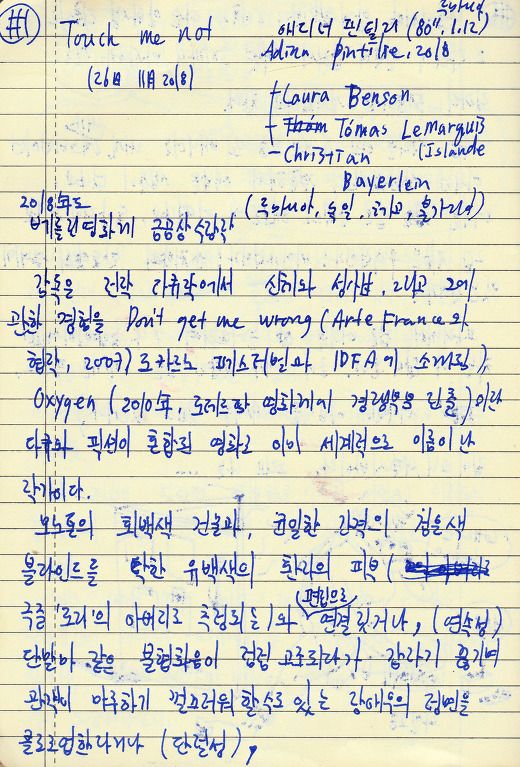 #1
Touch me not
(26日 11月 2018)
루마니아
애디너 핀틸리 (80", 1.12)
Adina Pintilie, 2018
Laura Benson
Tómas Lemarquis
(Islande
Christian
Bayerlein
2018年도
베를린영화제 금곰상 수상작
(루마니아, 독일, 체코, 불가리아)
감독은 전작 다큐작에서 신체와 성
관한 경험을 Don't get me wrong (Arte France와
협작, 2007) 로카르노 페스티벌과 IDFA에 소개된),
Oxygen (2010年, 로테르담 영화제에 경쟁부문 진출)이란
다큐와 픽션이 혼합된 영화로 이미 세계적으로 이름이 난
작가이다.
모노톤의 회백색 건물과, 균일한 간격의 검은색
블라인드를 유백색의 환자의 피부 (
극중 '로라'의 아버지로 추정되는)와 편집으로 연결짓거나, (연속성)
단말마 같은 불협화음이 점점 고조되다가 갑자기 끊기며
관객이 마주하기 껄끄러워할 수도 있는 장애우의 정면을
클로즈업한다거나 (단절성),